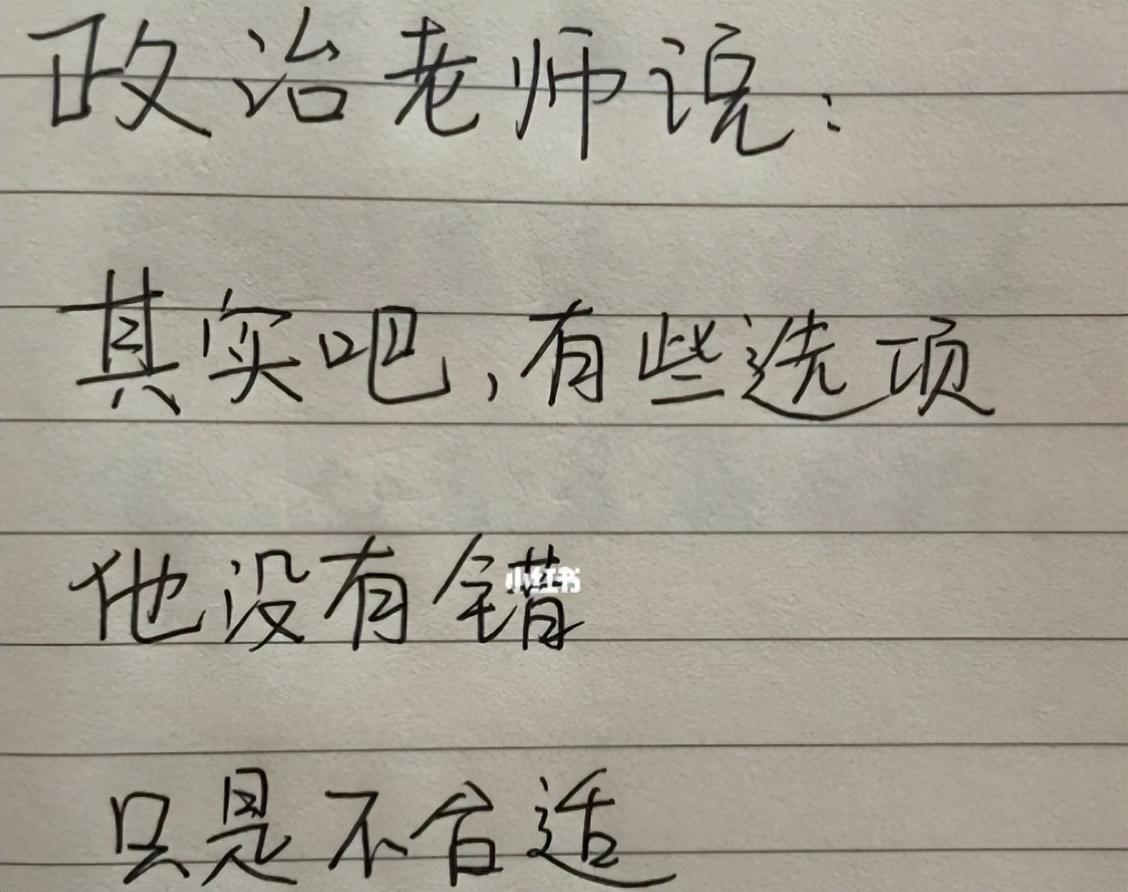 政治老师说:
其实吧,有些选项
他没有错
小红书
只是不合适